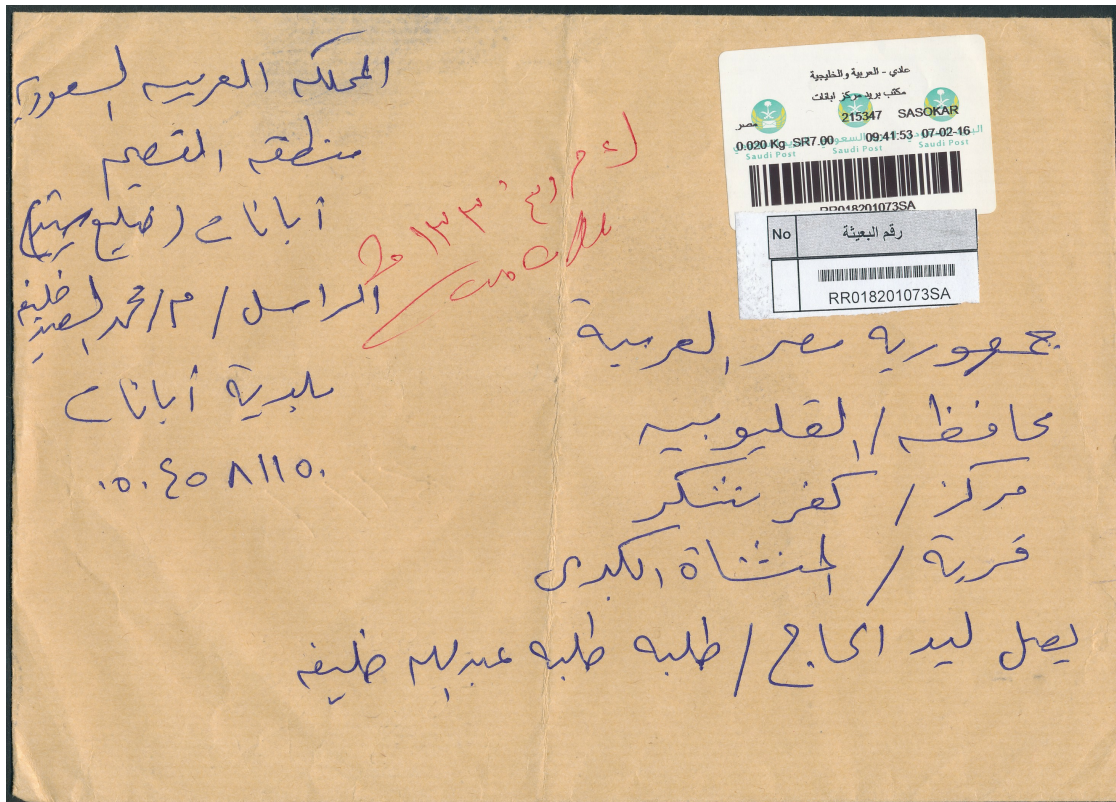 المملكه العربيه السعوديه
منطقه القصيم
أبانات (ضليع رشيد)
الراسل / م / محمد السعيد خليفه
بلدية أبانات
٠٥٠٤٥٨١١٥٠
عادي - العربية والخليجية
مكتب بريد مركز ابانات
مصر 215347 SASOKAR
0.020 Kg SR7.00 09:41:53 07-02-16
Saudi Post Saudi Post Saudi Post
RR018201073SA
No رقم البعيثة
RR018201073SA
جمهورية مصر العربية
محافظه / القليوبيه
مركز / كفر شكر
قرية / المنشاة الكبرى
يصل ليد الحاج / طلبه طلبه عبدالله خليفه